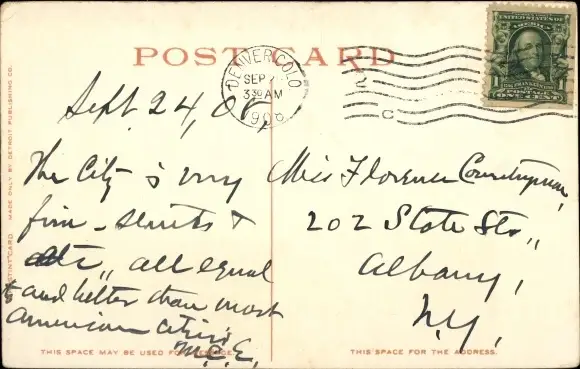 POST CARD
MADE ONLY BY DETROIT PUBLISHING CO.
UNITED STATES OF
AMERICA
POSTAGE
ONE CENT
DENVER, COLO.
SEP
330 AM
190
C
Sept 24, 06,
The City is very
fine - streets &
all equal
to and better than most
American cities
M.C.E.
Miss Florence Countryman,
202 State St.,
Albany,
N.Y.
THIS SPACE MAY BE USED FOR MESSAGE.
THIS SPACE IS FOR THE ADDRESS.